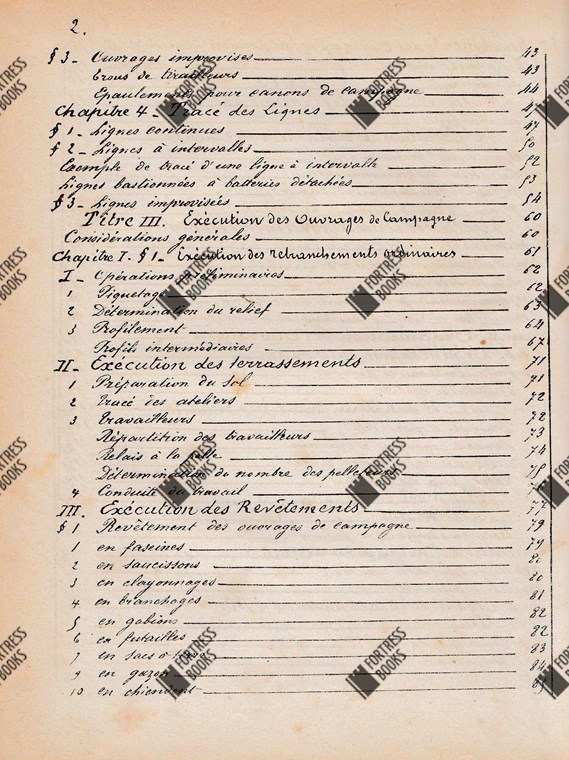 2.
§ 3 - Ouvrages improvisés 43
Trous de tirailleurs 43
Épaulements pour canons de campagne 44
Chapitre 4 - Tracé des Lignes 47
§ 1 - Lignes continues 47
§ 2 - Lignes à intervalles 50
Exemple de tracé d'une ligne à intervalle 52
Lignes bastionnées à batteries détachées 53
§ 3 - Lignes improvisées 54
Titre III. Exécution des Ouvrages de Campagne 60
Considérations générales 60
Chapitre I. § 1 - Exécution des retranchements ordinaires 61
I - Opérations préliminaires 62
1 Piquetage 62
2 Détermination du relief 63
3 Profilement 64
Profils intermédiaires 67
II - Exécution des terrassements 71
1 Préparation du sol 71
2 Tracé des ateliers 72
3 Travailleurs 72
Répartition des travailleurs 73
Relais à la pelle 74
Détermination du nombre des pelleteurs 75
4 Conduite du travail
III. Exécution des Revêtements 77
§ 1 Revêtement des ouvrages de campagne 79
1 en fascines 79
2 en saucissons 80
3 en clayonnages 80
4 en branchages 81
5 en gabions 82
6 en futailles 82
7 en sacs à terre 83
9 en gazon 84
10 en chiendent
FORTRESS BOOKS